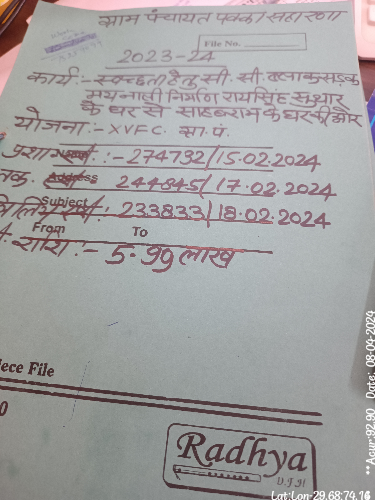 ग्राम पंचायत पक्का सहारणा
File No.
2023-24
कार्य:- स्वच्छता हेतु सी. सी. ब्लाक सड़क
मय नाली निर्माण रायसिंह सुथार
के घर से साहबराम के घर की ओर
योजना:- XVFC. ग्रा.पं.
:- 274732/15.02.2024
तक. Address 244845/17.02.2024
Subject : 233833/18.02.2024
From To
राशि:- 5.99 लाख
iece File
0
Radhya
** Acur:92.90 Date: 08-04-2024
Lat:Lon-29.68:74.16